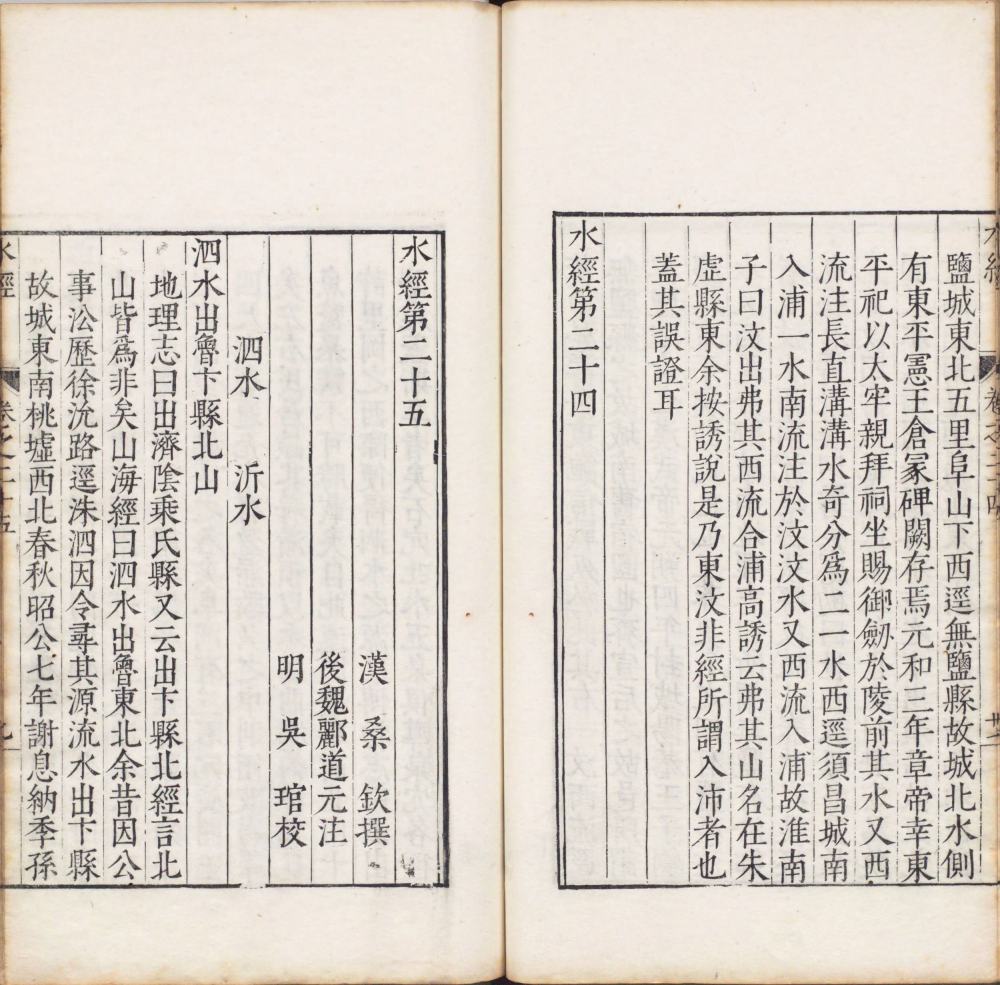 鹽城東北五里阜山下西逕無鹽縣故城北水側
有東平憲王倉冢碑闕存焉元和三年章帝幸東
平祀以太牢親拜祠坐賜御劒於陵前其水又西
流注長直溝溝水奇分爲二一水西逕須昌城南
入浦一水南流注於汶汶水又西流入浦故淮南
子曰汶出弗其西流合浦高誘云弗其山名在朱
虛縣東余按誘說是乃東汶非經所謂入沛者也
蓋其誤證耳
水經第二十四
水經第二十五
漢 桑 欽撰
後魏酈道元注
明 吳 琯校
泗水 沂水
泗水出魯卞縣北山
地理志曰出濟陰乘氏縣又云出卞縣北經言北
山皆爲非矣山海經曰泗水出魯東北余昔因公
事㳂歷徐沇路逕洙泗因令尋其源流水出卞縣
故城東南桃墟西北春秋昭公七年謝息納季孫